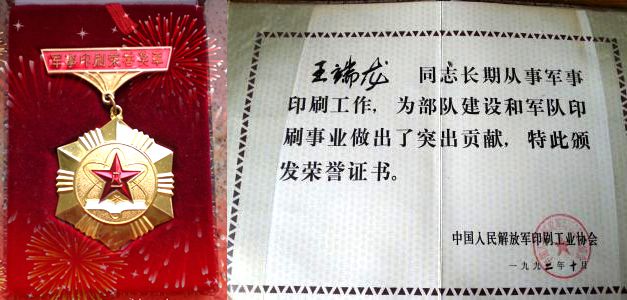 军事印刷荣誉奖章
王瑞龙 同志长期从事军事
印刷工作，为部队建设和军队印
刷事业做出了突出贡献，特此颁
发荣誉证书。
中国人民解放军印刷工业协会
一九九二年十月